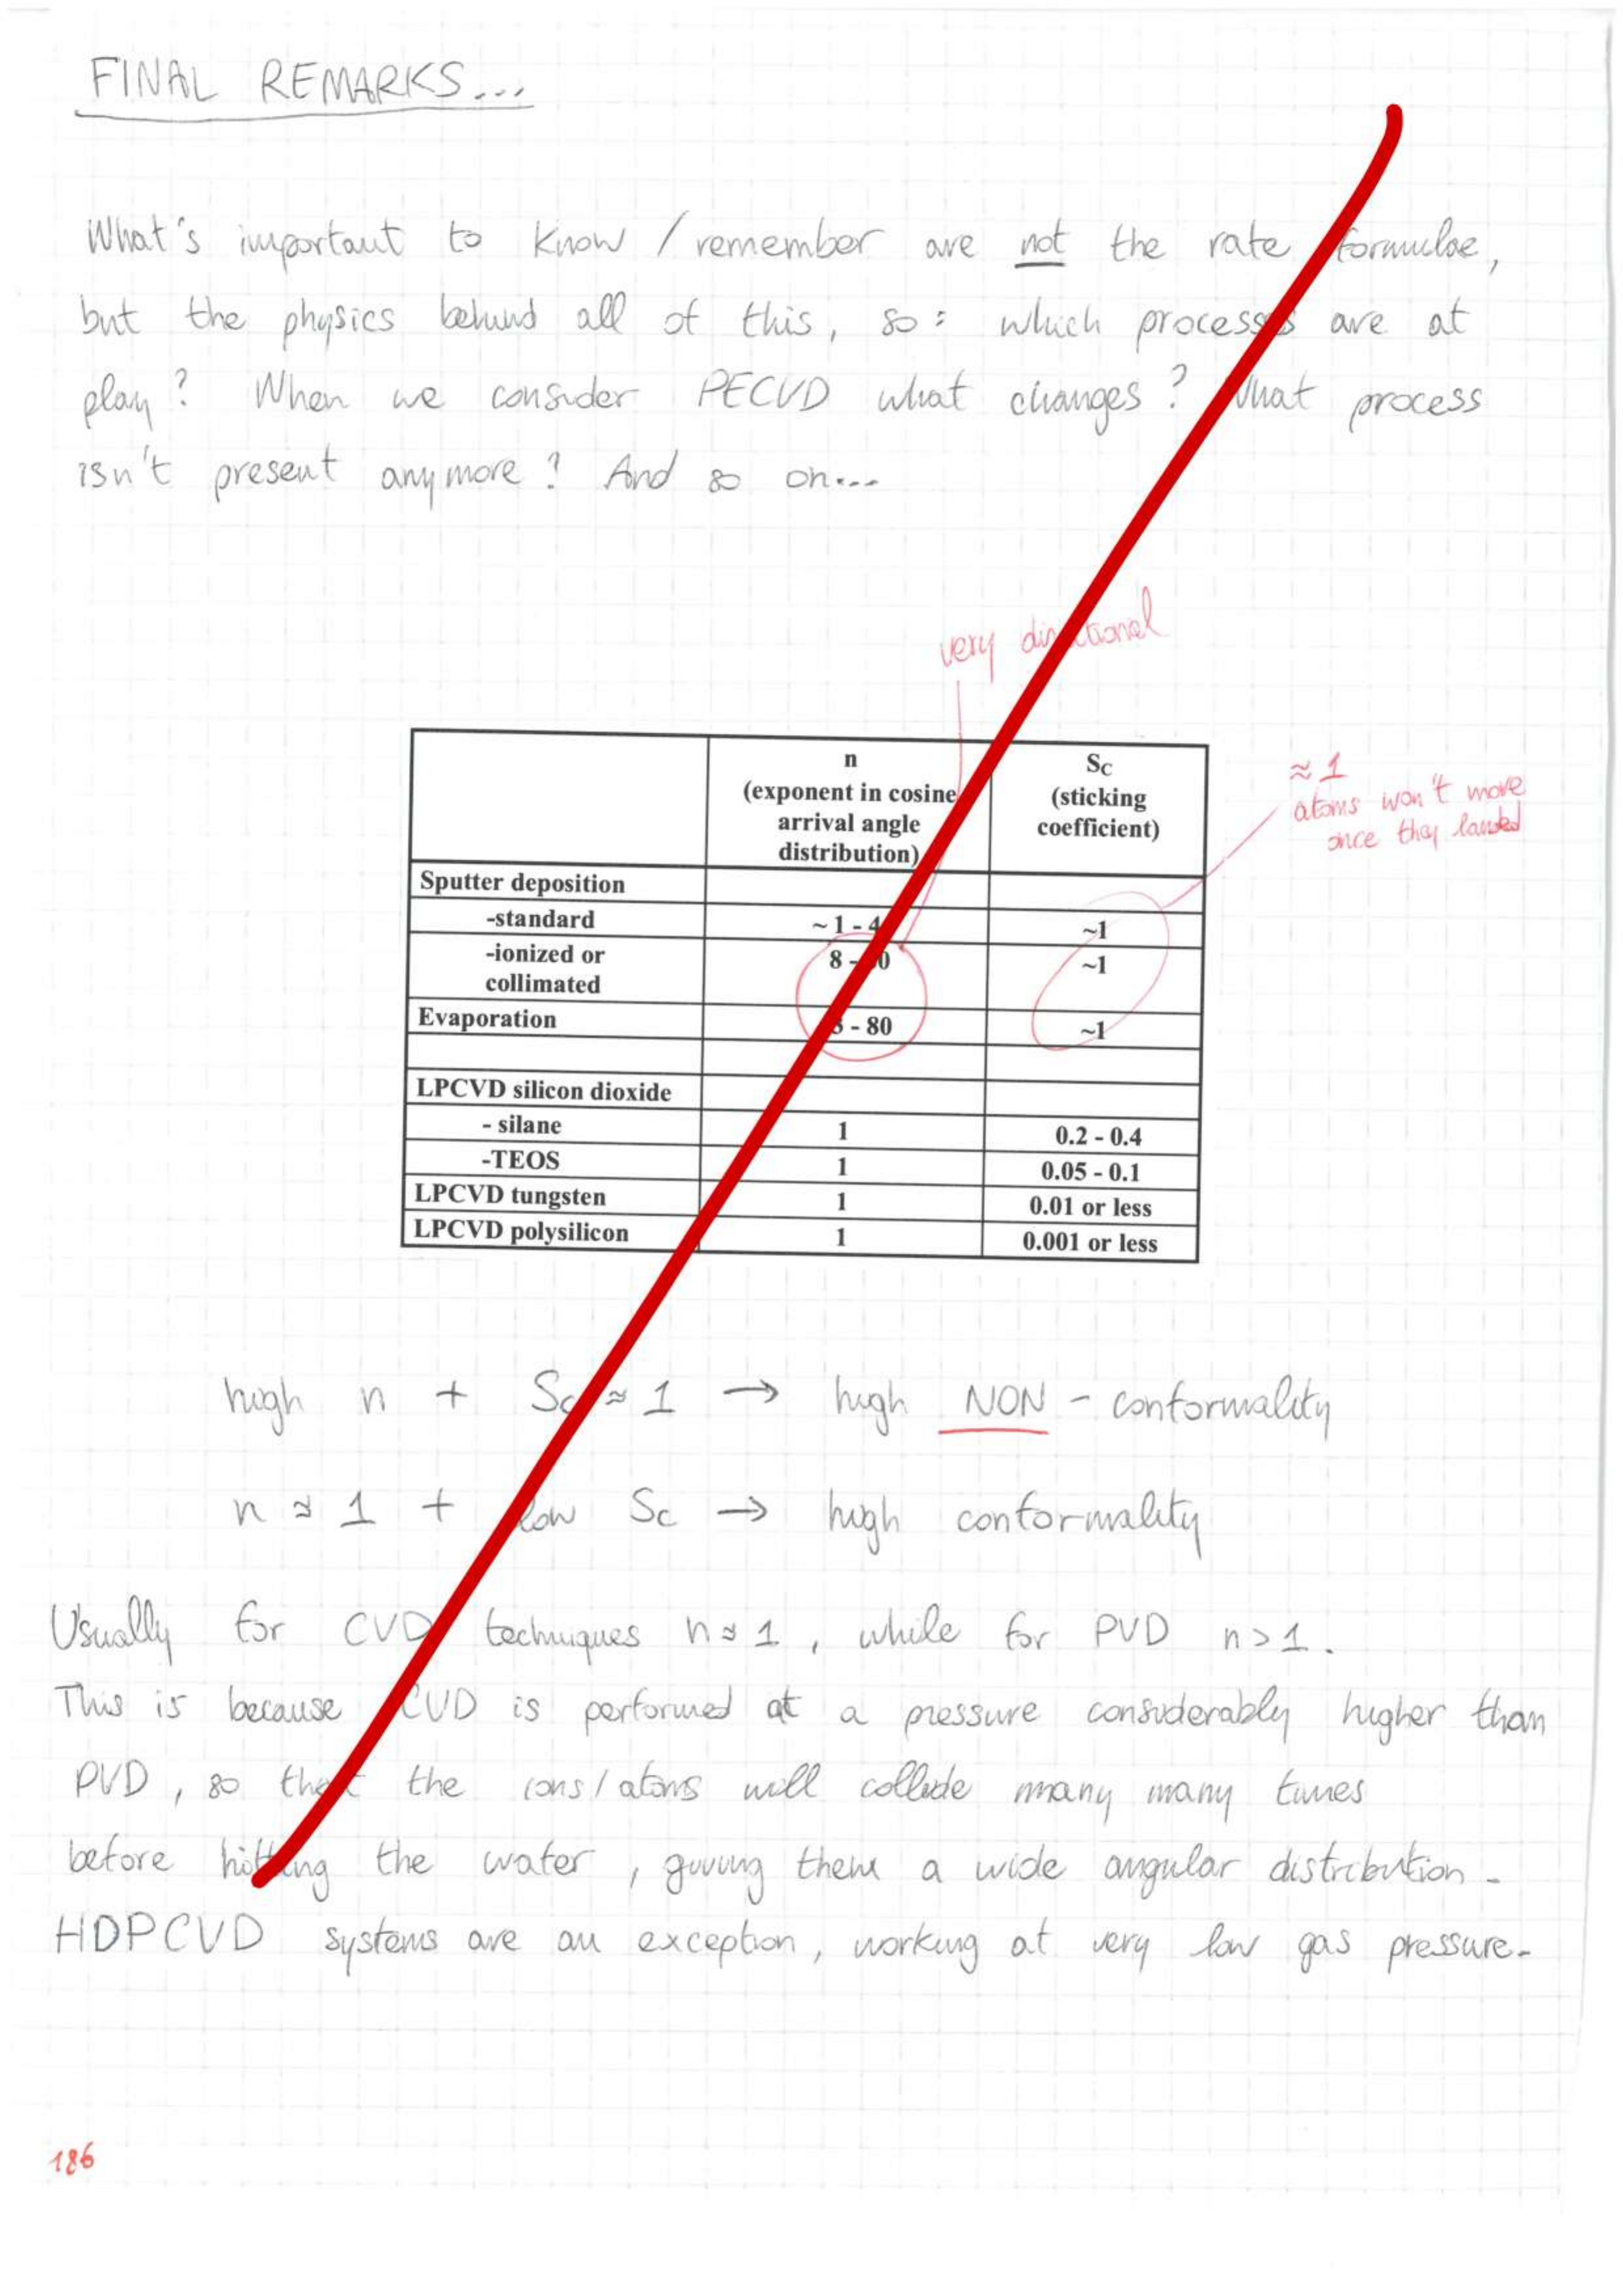 FINAL REMARKS...
What's important to know / remember are not the rate formulae,
but the physics behind all of this, so: which processes are at
play? When we consider PECVD what changes? What process
isn't present anymore? And so on...
very directional
n
(exponent in cosine
arrival angle
distribution)
Sc
(sticking
coefficient)
≈ 1
atoms won't move
once they landed
Sputter deposition
-standard ~ 1 - 4 ~1
-ionized or
collimated
8 - ~1
Evaporation - 80 ~1
LPCVD silicon dioxide
- silane 1 0.2 - 0.4
-TEOS 1 0.05 - 0.1
LPCVD tungsten 1 0.01 or less
LPCVD polysilicon 1 0.001 or less
high n + Sc ≈ 1 → high NON - conformality
n ≈ 1 + low Sc → high conformality
Usually for CVD techniques n ≈ 1, while for PVD n > 1.
This is because CVD is performed at a pressure considerably higher than
PVD, so that the ions/atoms will collide many many times
before hitting the wafer, giving them a wide angular distribution.
HDPCVD systems are an exception, working at very low gas pressure.
186